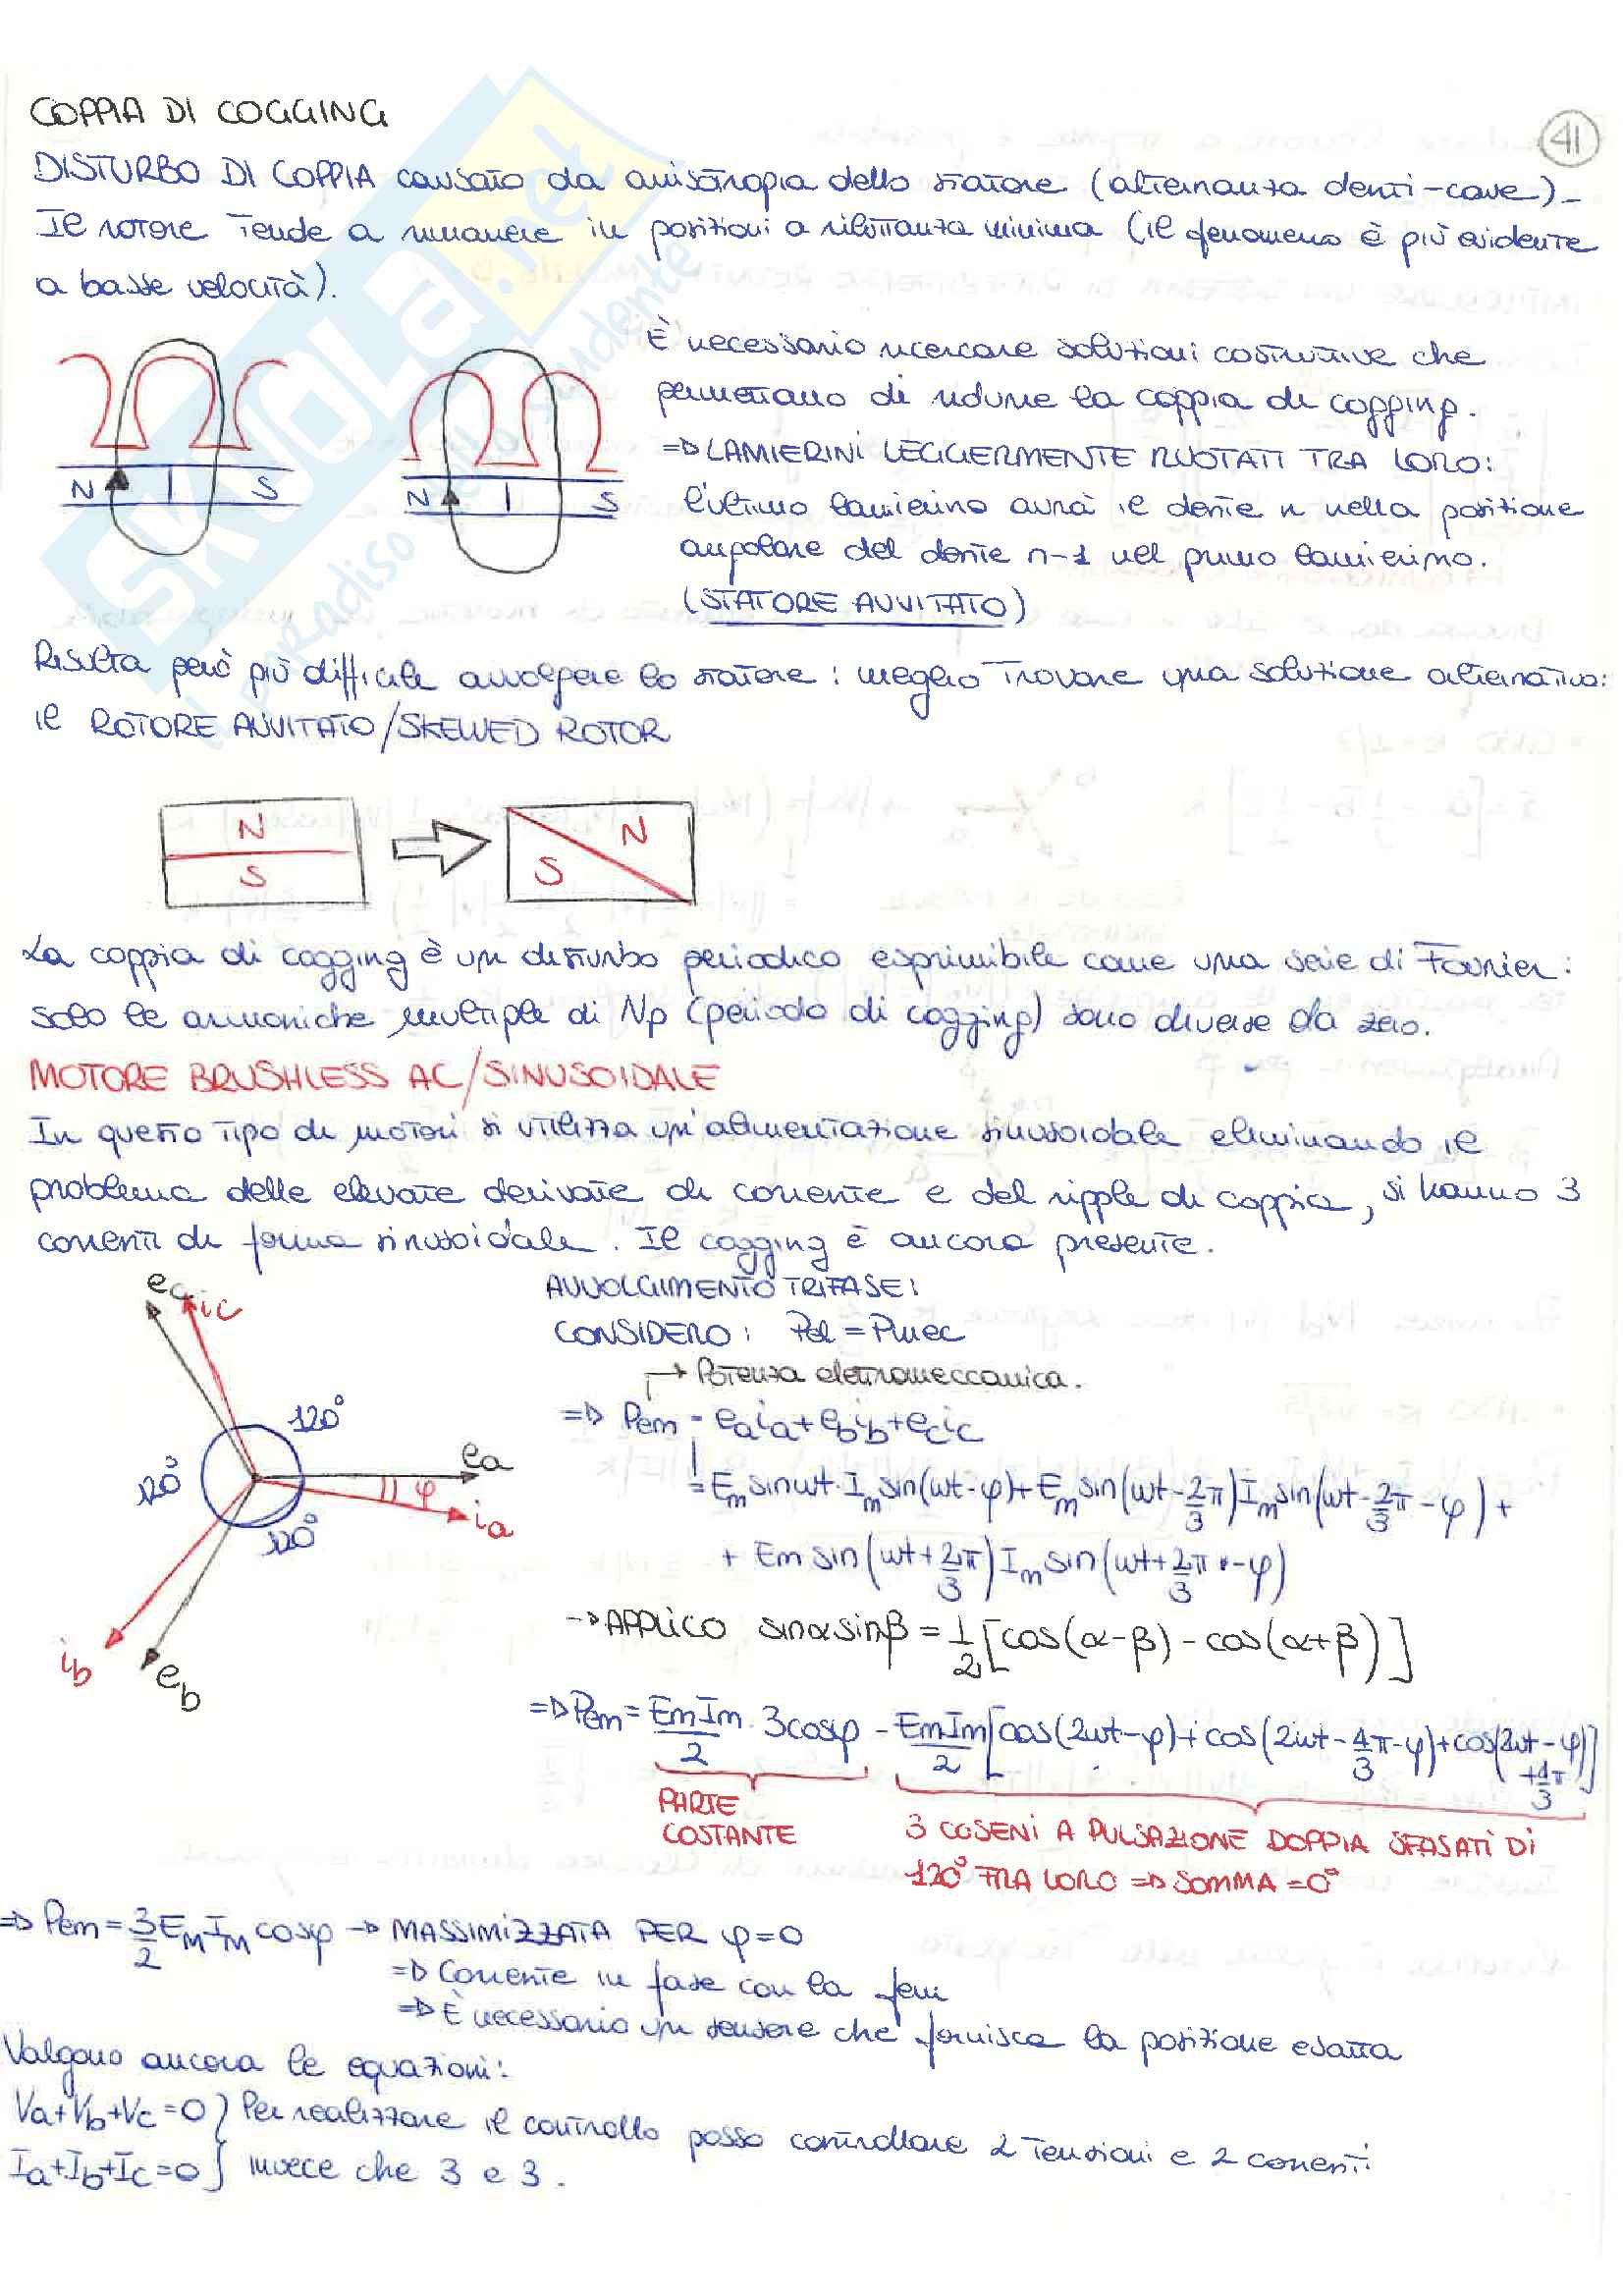 41
COPPIA DI COGGING
DISTURBO DI COPPIA causato da anisotropia dello statore (alternanza denti-cave)-
Il rotore tende a rimanere in posizioni a riluttanza minima (il fenomeno è più evidente
a basse velocità).
N S
N S
È necessario ricercare soluzioni costruttive che
permettano di ridurre la coppia di cogging.
=> LAMIERINI LEGGERMENTE RUOTATI TRA LORO:
l'ultimo lamierino avrà il dente n nella posizione
angolare del dente n-1 nel primo lamierino.
(STATORE AVVITATO)
Risulta però più difficile avvolgere lo statore: meglio trovare una soluzione alternativa:
il ROTORE AVVITATO/SKEWED ROTOR
N
S
N
S
La coppia di cogging è un disturbo periodico esprimibile come una serie di Fourier:
solo le armoniche multiple di Np (periodo di cogging) sono diverse da zero.
MOTORE BRUSHLESS AC/SINUSOIDALE
In questo tipo di motori si utilizza un'alimentazione sinusoidale eliminando il
problema delle elevate derivate di corrente e del ripple di coppia, si hanno 3
correnti di forma sinusoidale. Il cogging è ancora presente.
ec ic
120°
120°
120°
ea
φ
ia
ib
eb
AVVOLGIMENTO TRIFASE:
CONSIDERO: Pel = Pmec
→ Potenza elettromeccanica.
=> Pem = eaia + ebib + ecic
= Em sinωt · Im sin(ωt-φ) + Em sin(ωt-2/3π) Im sin(ωt-2/3π-φ) +
+ Em sin(ωt+2/3π) Im sin(ωt+2/3π-φ)
→ APPLICO sinα sinβ = 1/2 [cos(α-β) - cos(α+β)]
=> Pem = EmIm/2 · 3cosφ - EmIm/2 [cos(2ωt-φ) + cos(2ωt-4/3π-φ) + cos(2ωt-φ+4/3π)]
PARTE
COSTANTE
3 COSENI A PULSAZIONE DOPPIA SFASATI DI
120° FRA LORO => SOMMA = 0°
=> Pem = 3/2 EM IM cosφ → MASSIMIZZATA PER φ=0
=> Corrente in fase con la fem
=> È necessario un sensore che fornisca la posizione esatta
Valgono ancora le equazioni:
Va+Vb+Vc=0 } Per realizzare il controllo posso controllare 2 tensioni e 2 correnti
Ia+Ib+Ic=0 } invece che 3 e 3.
SKUOLA.net
il paradiso dello studente